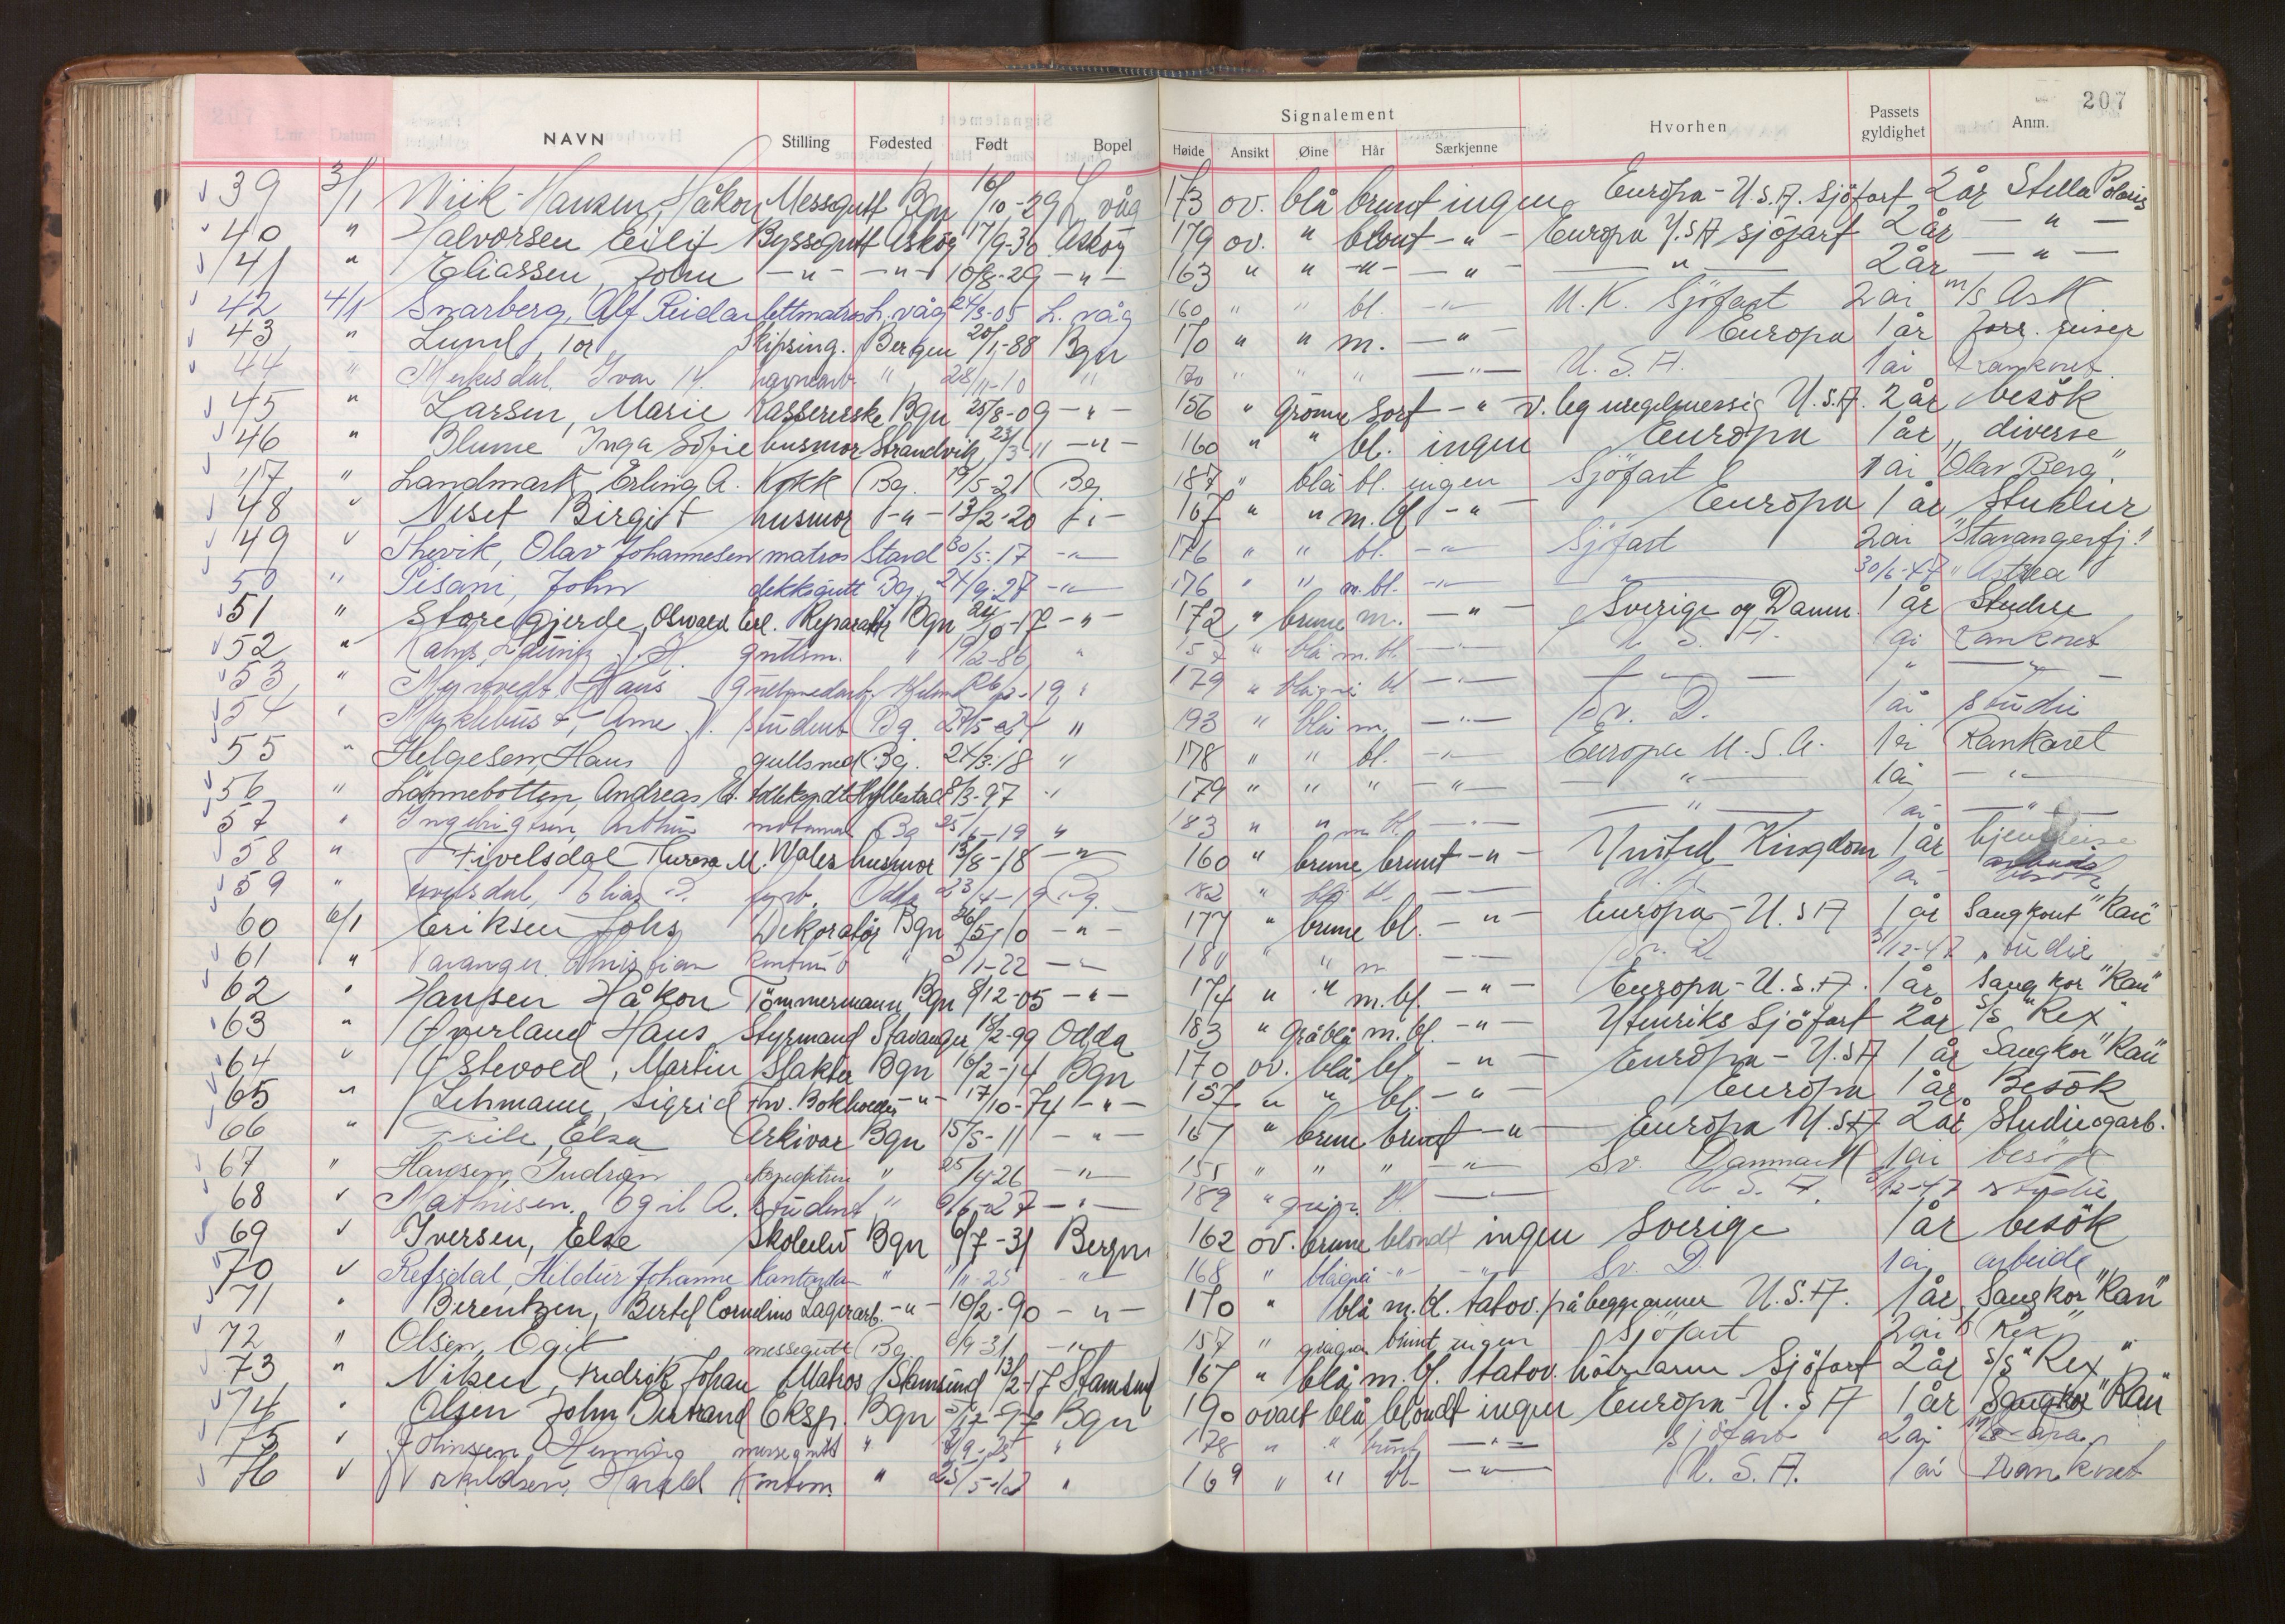 207
Signalement
L.nr. Datum NAVN Stilling Fødested Født Bopel Høide Ansikt Øine Hår Særkjenne Hvorhen Passets gyldighet Anm.
39 3/1 Wiik-Hansen, Håkon Messegutt Bgn 16/10-29 L.våg 173 ov. blå brunt ingen Europa-U.S.A. sjöfart 2 år Stella Polaris
40 " Halvorsen Eilif Byssegutt Askøy 17/9-30 Askøy 179 ov. " blont -"- Europa U.S.A sjöfart 2 år -"-
41 " Eliassen, John -"- -"- 10/8-29 -"- 163 " " -"- -"- -"- 2 år -"-
42 4/1 Snarberg, Alf Reidar lettmatros L.våg 24/3-05 L.våg 160 " " bl. -"- U.K. Sjöfart 2 år m/s Ask
43 " Lund, Tor Skipsing. Bergen 20/1-88 Bgn 170 " " m. -"- Europa 1 år forr. reiser
44 " Ivar M. havnearb. " 28/11-10 " 170 " " " -"- U.S.A. 1 år
45 " Larsen, Marie Kassererske Bgn 25/8-09 -"- 156 " grönne sort -"- v. leg uregelmessig U.S.A. 2 år besök
46 " Blume Inga Sofie husmor Strandvik 23/3-11 -"- 160 " " bl. ingen Europa 1 år diverse
47 " Landmark Erling A. Kokk Bg. 19/5-21 Bg. 187 " blå bl. ingen Sjöfart 1 år "Olav Berg"
48 " Neset Birgit husmor -"- 13/2-20 -"- 167 " " m.bl -"- Europa 1 år
49 " Olav Johannesen matros Stavd 30/5-17 -"- 176 " " bl. -"- Sjöfart 2 år "Stavangerfj."
50 " Pisani, John dekksgutt Bg. 24/9-27 -"- 176 " " m.bl. -"- -"- 30/6-47 "Astrea
51 " Storegjerde, Oswald Reparatør Bgn -"- 172 " brune m. -"- Sverige og Danm. 1 år Studie
52 " gullsm. " 19/2-86 " 157 " blå m.bl. -"- U.S.A. 1 år
53 " Myrtvedt Hans 179 " blågrå bl -"- -"- " -"-
54 " Myklebust, Arne student Bg. " 193 " blå m. -"- Sv. D. 1 år studie
55 " Helgesen, Hans gullsmed Bg. 24/3-18 " 178 " " bl. -"- Europa U.S.A. 1 år Rankoret
56 " Lönnebotten, Andreas 8/3-97 " 179 " " " -"- -"- 1 år -"-
57 " Ingebrigtsen, Arthur Bg 25/6-19 " 183 " " m.bl. -"- -"- 1 år -"-
58 " Fivelsdal Theresa M. Wales husmor 13/8-18 -"- 160 " brune brunt -"- United Kingdom 1 år
59 " Fivelsdal, fyrb. Odda 23/4-19 Bg. 182 " blå bl. -"- 1 år
60 6/1 Eriksen Johs Dekoratør Bgn 26/5-10 -"- 177 " brune bl. -"- Europa-U.S.A 1 år Sangkor "Ran"
61 " Varanger, Christian " 3/1-22 -"- 180 " " m -"- Sv. D 3/12-47 studie
62 " Hansen Håkon Tömmermann Bgn 8/12-05 -"- 174 " " m.bl. -"- Europa-U.S.A. 1 år Sangkor "Ran"
63 " Överland Hans Styrmand Stavanger 16/2-99 Odda 183 " gråblå m.bl. -"- Utenriks Sjöfart 2 år s/s "Rex"
64 " Östevold, Martin Slakter Bgn 16/2-14 Bgn 170 ov. blå bl. -"- Europa-U.S.A 1 år Sangkor "Ran"
65 " Lehmann, Sigrid fhv. Bokholder -"- 17/10-74 -"- 157 " " bl. -"- Europa 1 år Besök
66 " Friele, Elsa Arkivar Bgn 15/5-11 -"- 167 " brune brunt -"- Europa U.S.A 2 år Studieogarb.
67 " Hansen, Gudrun ekspeditrise " 25/4-26 -"- 155 " " " -"- Sv. Danmark 1 år besök
68 " Mathiesen, Egil A. student " 9/6-27 -"- 189 " bl -"- U.S.A. 3/12-47 studie
69 " Iversen, Else Skoleelev Bgn 6/7-31 Bergen 162 ov. brune blondt ingen Sverige 1 år besök
70 " Refsdal, Hildur Johanne Kontorda " -"- 168 " blågrå -"- -"- Sv. D. 1 år arbeide
71 " Berentzen, Bertel Cornelius Lagerarb. -"- 10/2-90 -"- 170 " blå m.bl. tatov. på begge armer U.S.A. 1 år Sangkor "Ran"
72 " Olsen, Egil messegutt Bg. 6/9-31 -"- 157 " brunt ingen Sjöfart 2 år "Rex"
73 " Nilsen, Fredrik Johan Matros Stamsund 13/2-17 Stamsund 167 " blå m.bl. tatov. höire arm Sjöfart 2 år s/s "Rex"
74 " Olsen John Bertrand Eksp. Bgn Bgn 190 ovalt blå blondt ingen Europa-U.S.A 1 år Sangkor "Ran"
75 " Johnsen, Henning messegutt " " 178 " " brunt -"- Sjöfart 2 år
76 " Harald Kontorm. " " 169 " " bl. -"- U.S.A. 1 år